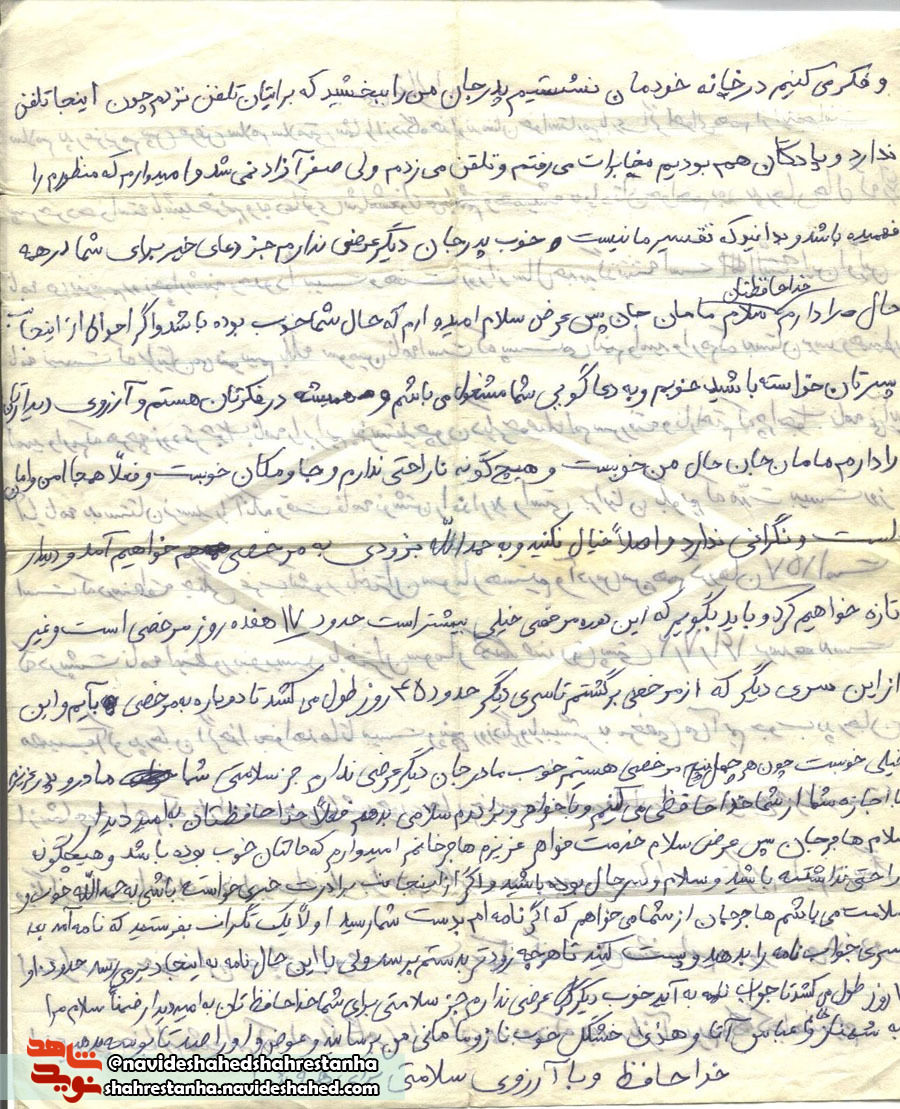 و فکر می کنیم در خانه خودمان نشستیم پدر جان من را ببخشید که براتیان تلفن نزدم چون اینجا تلفن
ندارد و پادگان هم بودیم مخابرات می رفتم و تلفن می زدم ولی صفر آزاد نمی شد و امیدوارم که منظورم را
فهمیده باشد و بدانید که تقسیر ما نیست و خوب پدر جان دیگر عرضی ندارم جز دعای خیر برای شما در همه
خداحافظتان
حال دارم سلام مامان جان پس عرض سلام امیدوارم که حال شما خوب بوده باشد و اگر احوالی از اینجانب
پسرتان خواسته باشید خوبم و به دعاگویی شما مشغول می باشم و همیشه در فکرتان هستم و آرزوی دیدارتان
را دارم مامان جان حال من خوبست و هیچ گونه ناراحتی ندارم و جا و مکان خوبست و فعلاً همه جا امن و امان
است و نگرانی ندارد و اصلاً خیال نکنید و به حمدالله بزودی به مرخصی خواهیم آمد و دیدار
تازه خواهیم کرد و باید بگویم که این دوره مرخصی خیلی بیشتر است حدود ۱۷ هفده روز مرخصی است و غیر
از این سری دیگر که از مرخصی برگشتم تا سری دیگر حدود ۴۵ روز طول می کشد تا دوباره به مرخصی بیآیم و این
خیلی خوبست چون هر چهل پنج مرخصی هستم خوب مادر جان دیگر عرضی ندارم جز سلامتی شما مادر و پدر عزیزم
با اجازه شما از شما خداحافظی می کنم و با خواهر و برادرم سلامی بدهم فعلاً خداحافظتان به امید دیدار
سلام هاجر جان پس عرض سلام خدمت خواهر عزیزم هاجر خانم امیدوارم که حالتان خوب بوده باشد و هیچگونه
ناراحتی نداشته باشد و سلام و سرحال بوده باشید و اگر از اینجانب برادرت خبری خواسته باشی به حمدالله خوب و
سلامت می باشم هاجر جان از شما می خواهم که اگر نامه ام بدست شما رسید اولاً یک تلگراف بفرستید که نامه آمد بعد
سری جواب نامه را بدهید و پست کنید تا هر چه زودتر بدستم برسد ولی با این حال نامه به اینجا دیر می رسد حدود
روز طول می کشد تا جواب نامه به آید خوب دیگر عرضی ندارم جز سلامتی برای شما خداحافظتان به امید دیدار ضمناً سلام مرا
به عباس آقا و خشگل خوب نازو مامانی من برسانید و عوض او را صد تا بوسه بدهید
خداحافظ و با آرزوی سلامتی
@navideshahedshahrestanha
shahrestanha.navideshahed.com
نوید شاهد